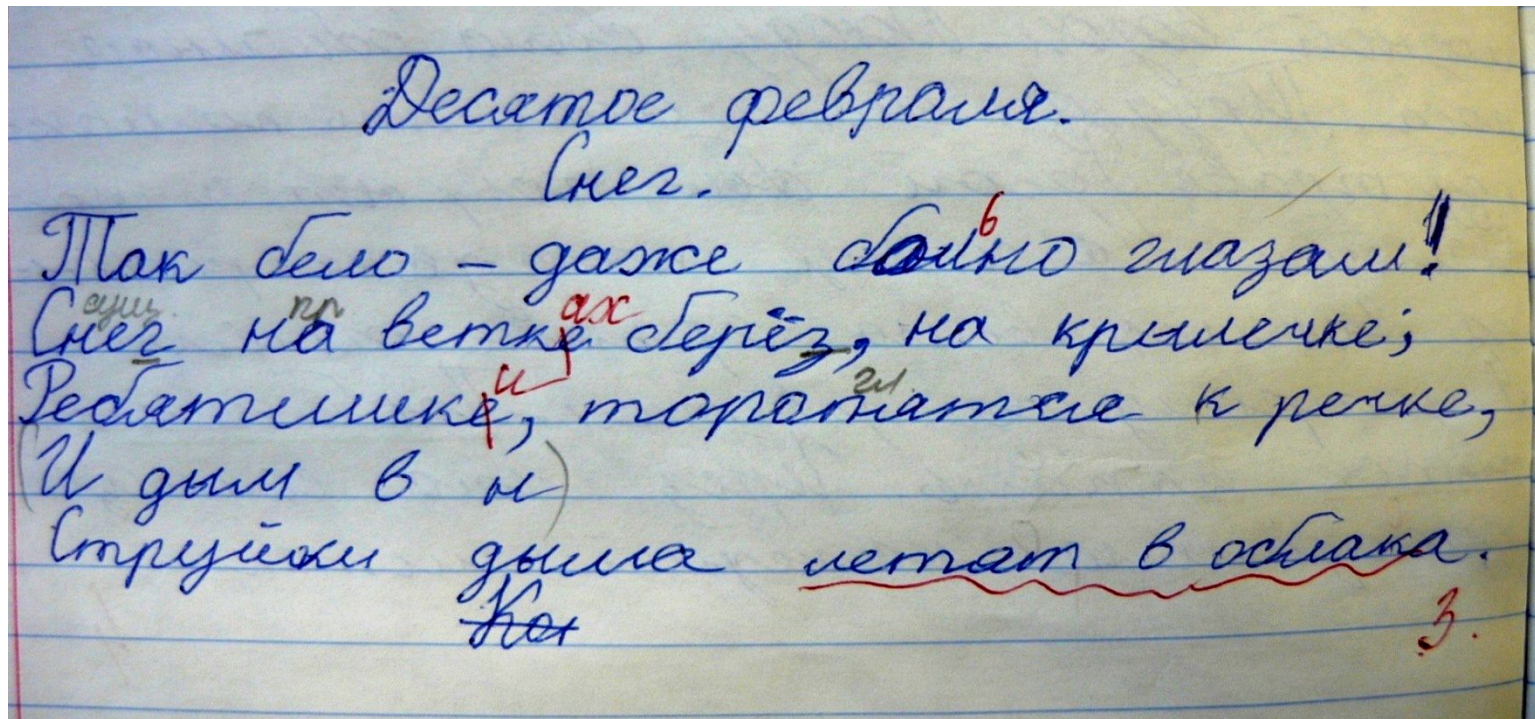 Десятое февраля.
Снег.
Так бело – даже болно глазам!
Снег на ветке берёз, на крылечке;
Ребятишке, торопятся к речке,
(И дым в н)
Струйки дыма летат в облака.
3.